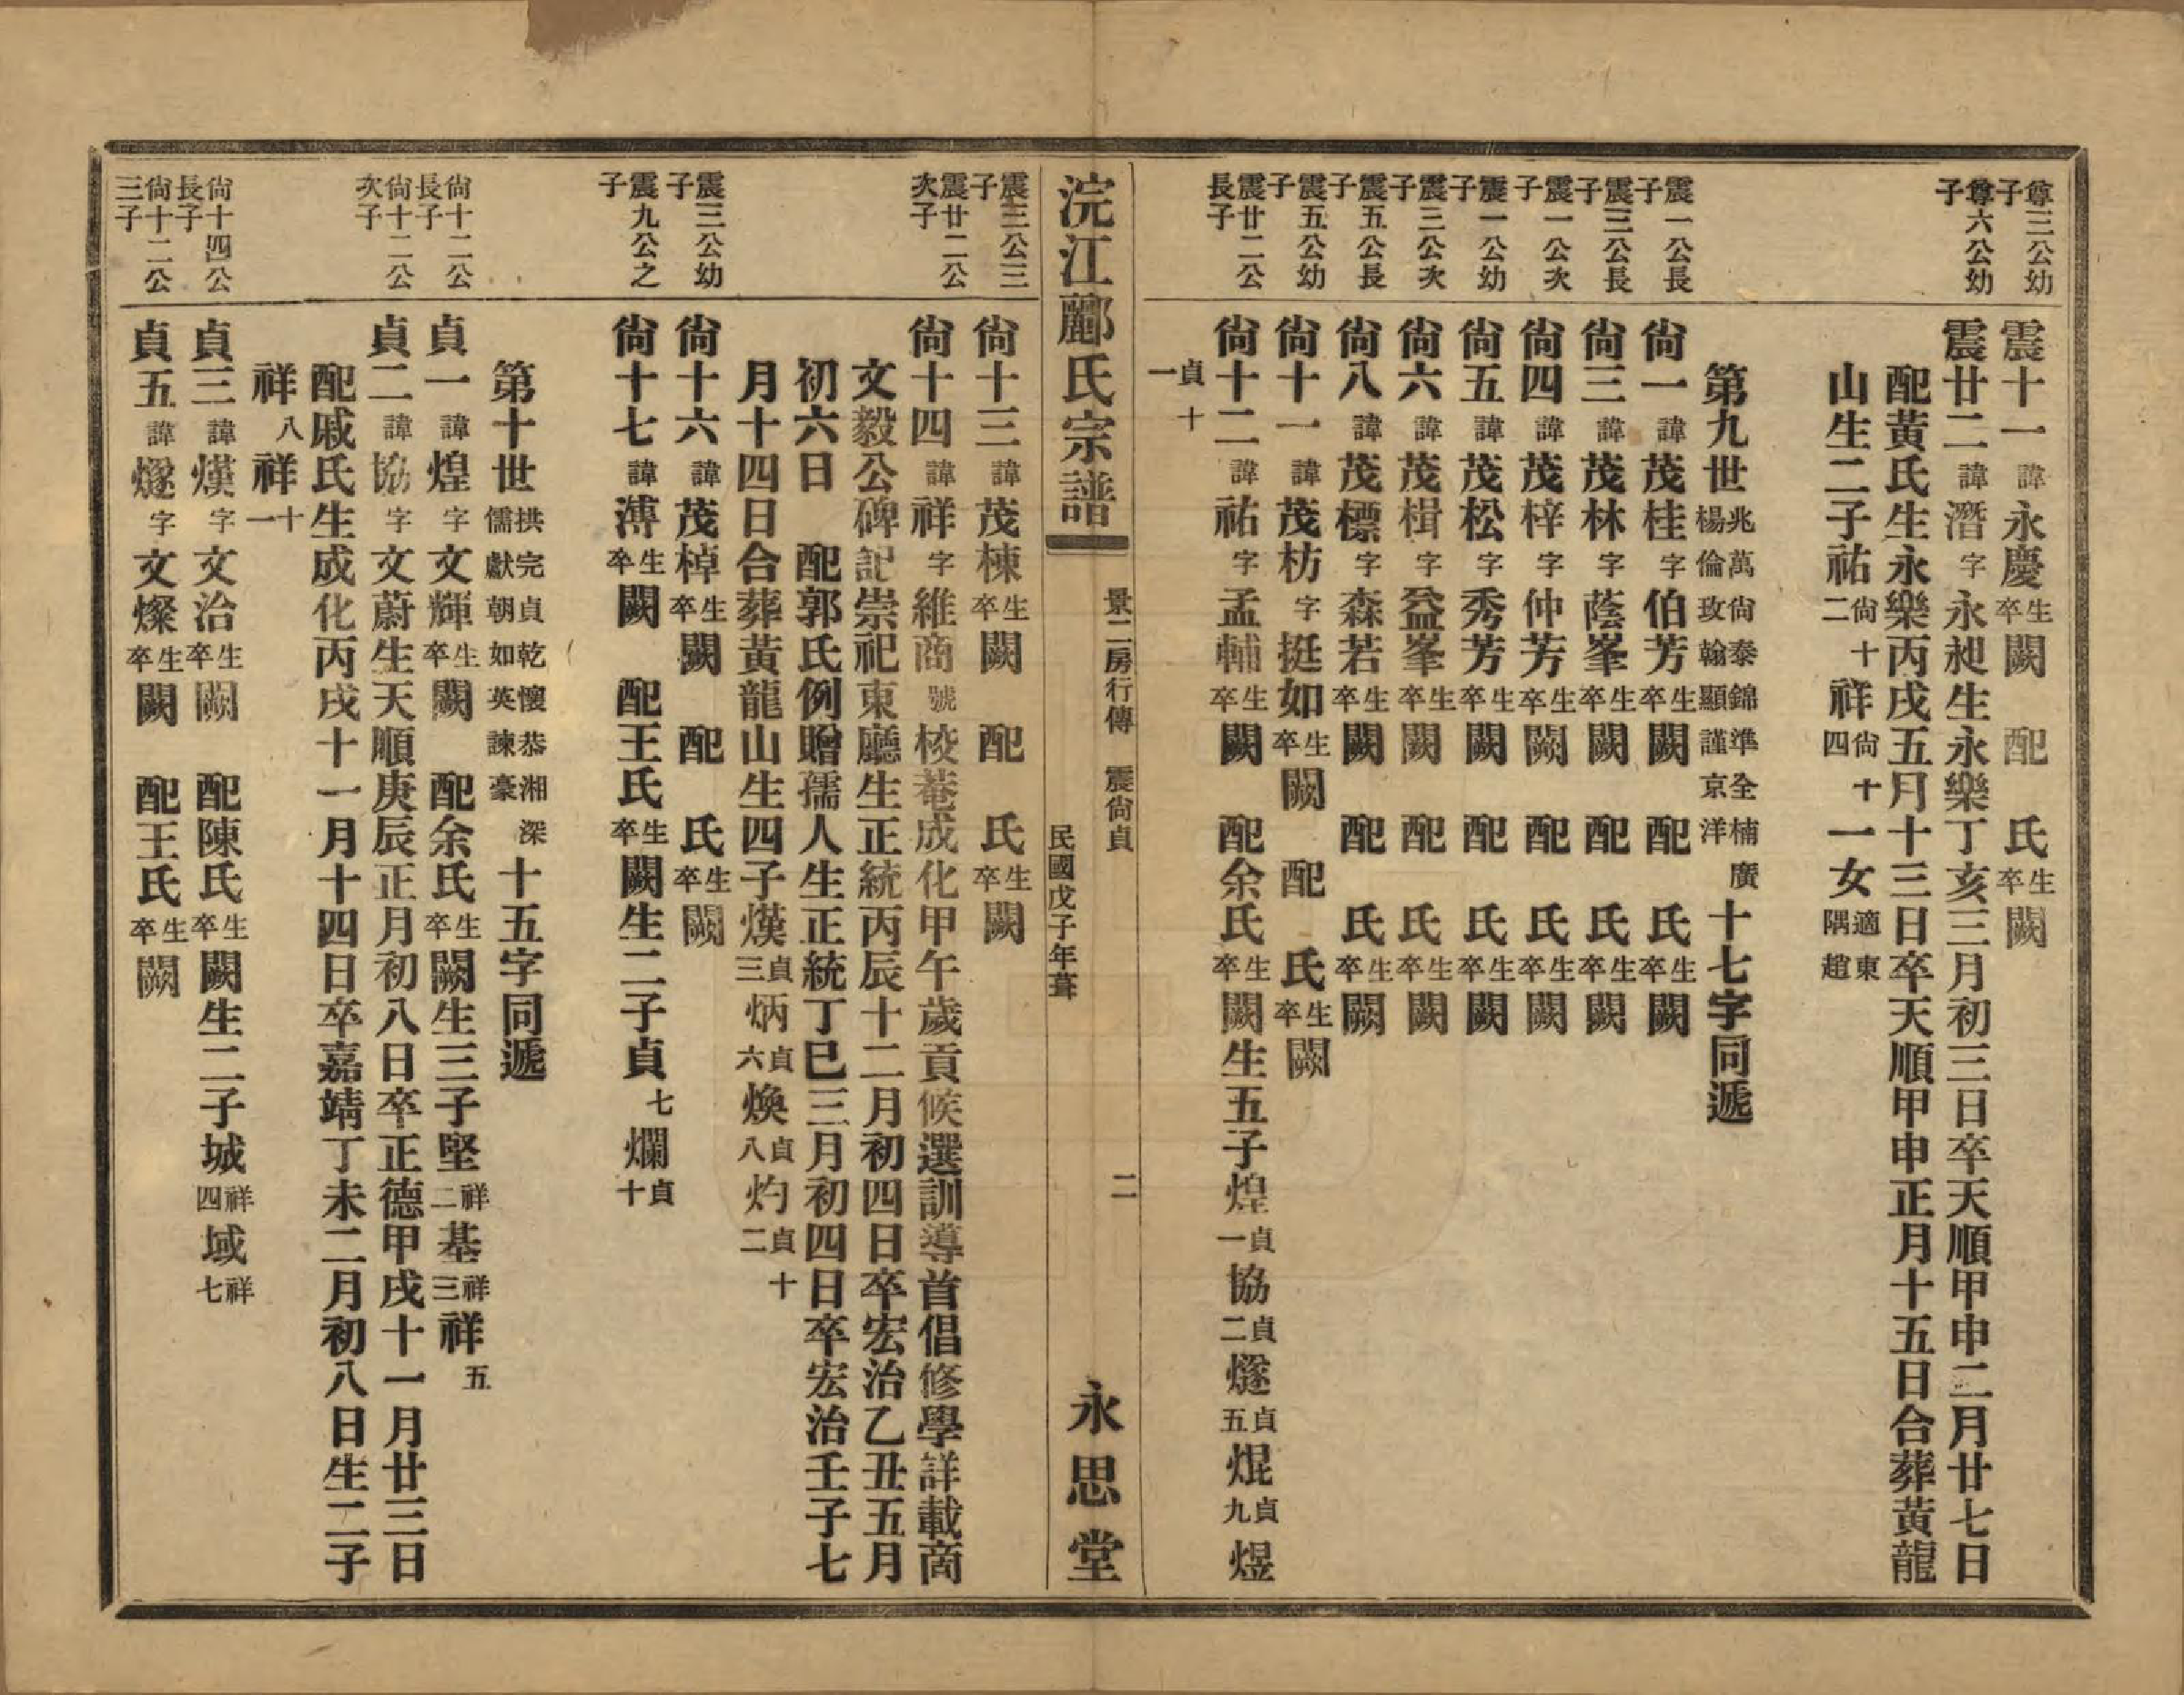 尊三公幼子
震十一 諱永慶 生卒闕 配 氏 生卒闕
尊六公幼子
震廿二 諱潛 字永昶生永樂丁亥三月初三日卒天順甲申二月廿七日
配黃氏生永樂丙戌五月十三日卒天順甲申正月十五日合葬黃龍
山生二子祐 尙十二 祥 尙十四 一女 適東隅趙
第九世 兆萬尙泰錦準全楠廣楊倫玫翰顯謹京洋 十七字同遞
震一公長子
尙一 諱茂桂 字伯芳 生卒闕 配 氏 生卒闕
震三公長子
尙三 諱茂林 字蔭峯 生卒闕 配 氏 生卒闕
震一公次子
尙四 諱茂梓 字仲芳 生卒闕 配 氏 生卒闕
震一公幼子
尙五 諱茂松 字秀芳 生卒闕 配 氏 生卒闕
震三公次子
尙六 諱茂楫 字益峯 生卒闕 配 氏 生卒闕
震五公長子
尙八 諱茂標 字森若 生卒闕 配 氏 生卒闕
震五公幼子
尙十一 諱茂枋 字挺如 生卒闕 配 氏 生卒闕
震廿二公長子
尙十二 諱祐 字孟輔 生卒闕 配余氏 生卒闕生五子煌 貞一 協 貞二 燧 貞五 焜 貞九 煜
貞十一
浣江酈氏宗譜
景二房行傳 震尙貞
民國戊子年葺
二
永思堂
震三公三子
尙十三 諱茂棟 生卒闕 配 氏 生卒闕
震廿二公次子
尙十四 諱祥 字維商 號梭菴成化甲午歲貢候選訓導首倡修學詳載商
文毅公碑記崇祀東廳生正統丙辰十二月初四日卒宏治乙丑五月
初六日 配郭氏例贈孺人生正統丁巳三月初四日卒宏治壬子七
月十四日合葬黃龍山生四子熯 貞三 炳 貞六 煥 貞八 灼 貞十二
震三公幼子
尙十六 諱茂棹 生卒闕 配 氏 生卒闕
震九公之子
尙十七 諱溥 生卒闕 配王氏 生卒闕生二子貞 七 爛 貞十
第十世 拱完貞乾懷恭湘深儒獻朝如英諫豪 十五字同遞
尙十二公長子
貞一 諱煌 字文輝 生卒闕 配余氏 生卒闕生三子堅 祥二 基 祥三 祥 五
尙十二公次子
貞二 諱協 字文蔚生天順庚辰正月初八日卒正德甲戌十一月廿三日
配戚氏生成化丙戌十一月十四日卒嘉靖丁未二月初八日生二子
祥 八 祥 十一
尙十四公長子
貞三 諱熯 字文治 生卒闕 配陳氏 生卒闕生二子城 祥四 域 祥七
尙十二公三子
貞五 諱燧 字文燦 生卒闕 配王氏 生卒闕